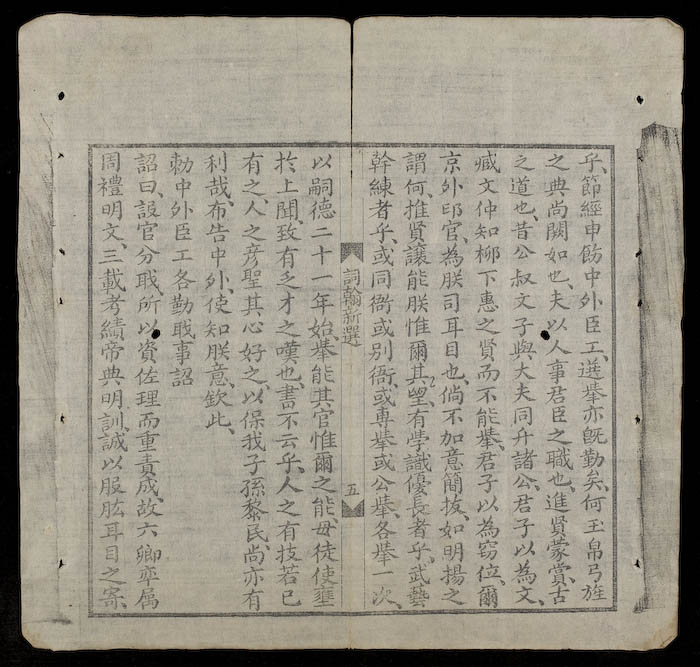 乎、節經申飭中外臣工、選舉亦旣勤矣、何玉帛弓旌
之典尚闕如也、夫以人事君臣之職也、進賢蒙賞、古
之道也、昔公叔文子與大夫同升諸公、君子以為文、
臧文仲知柳下惠之賢而不能舉、君子以為窃位、爾
京外印官、為朕司耳目也、倘不加意簡拔、如明揚之
謂何、推賢讓能朕惟爾其望、有学識優長者乎、武藝
幹練者乎、或同衙或别衙、或專舉或公舉、各舉一次、
詞翰新選
五
以嗣德二十一年始、舉能其官惟爾之能、毋徒使壅
於上聞、致有乏才之嘆也、書不云乎、人之有技若己
有之、人之彦聖其心好之、以保我子孫黎民、尚亦有
利哉、布告中外、使知朕意、欽此、
勑中外臣工各勤職事詔
詔曰、設官分職、所以資佐理而重責成、故六卿率属
周禮明文、三載考績帝典明訓、誠以股肱耳目之寄、